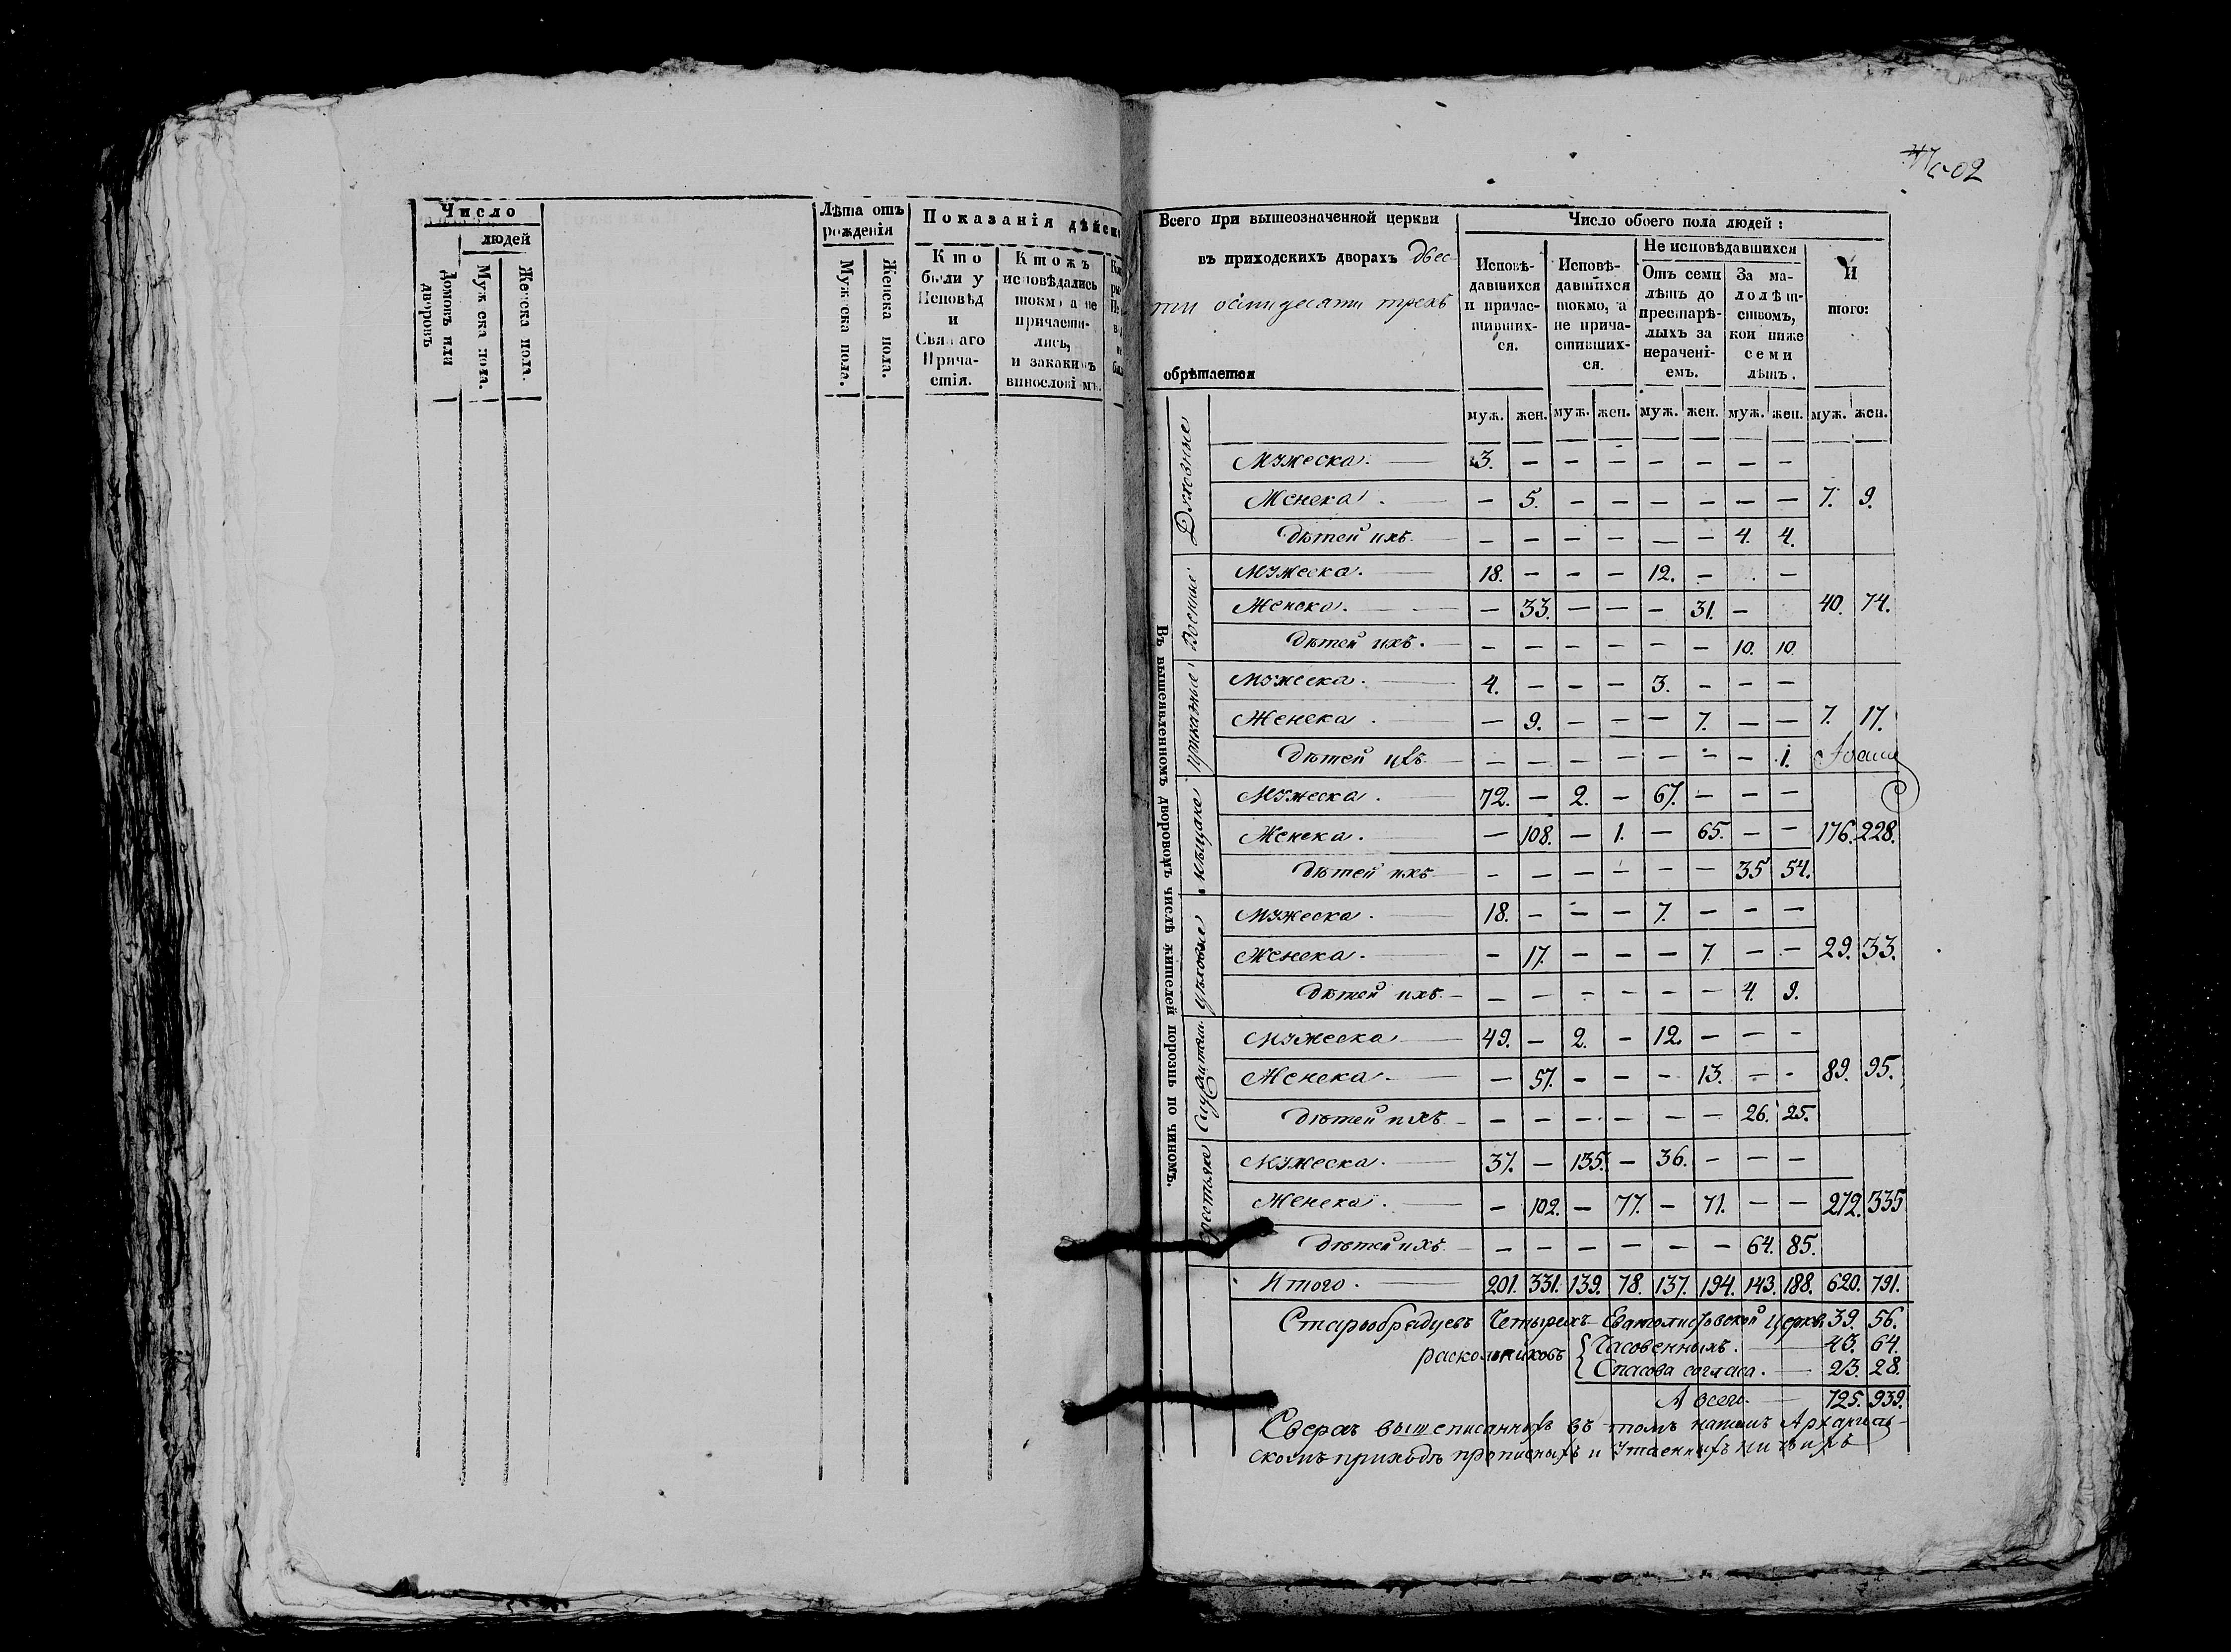 Число
людей
Домовъ или дворовъ
Мужеска пола.
Женска пола.
Лѣта отъ рожденія
Мужеска пола.
Женска пола.
Показанія дѣйст
Кто
были у
Исповѣд
и
Святаго
Прича-
стія.
Ктожъ
исповѣдались
токмо а не
причасти-
лись,
и закакимъ
винословіемъ.
502
Всего при вышеозначенной церкви
въ приходскихъ дворахъ двес-
ти осмидесяти трехъ
обрѣтается
Число обоего пола людей :
Исповѣ-
давшихся
и причас-
тивших-
ся.
Исповѣ-
давшихся
токмо, а
не прича-
стивших-
ся.
Не исповѣдавшихся
Отъ семи
лѣтъ до
престарѣ-
лыхъ за
нерачені-
емъ.
За ма-
лолѣт-
ствомъ,
кои ниже
семи
лѣтъ.
И
того:
муж. жен. муж. жен. муж. жен. муж. жен. муж. жен.
Въ вышеявленномъ дворовомъ числѣ жителей порознь по чиномъ.
Духовные
Мужеска. 3. — — — — — — —
Женска. — 5. — — — — — — 7. 9.
Дѣтей ихъ — — — — — — 4. 4.
Военные
Мужеска. 18. — — — 12. — —
Женска. — 33. — — — 31. — 40. 74.
Дѣтей ихъ. — — — — — — 10. 10.
приказные
Мужеска. 4. — — — 3. — — —
Женска. — 9. — — — 7. — — 7. 17.
Дѣтей ихъ — — — — — — — 1.
мѣщане
Мужеска. 72. — 2. — 67. — — —
Женска. — 108. — 1. — 65. — — 176. 228.
Дѣтей ихъ — — — — — — 35 54.
цѣховые
Мужеска. 18. — — — 7. — — —
Женска. — 17. — — — 7. — — 29. 33.
Дѣтей ихъ — — — — — — 4. 9.
Мужеска 49. — 2. — 12. — — —
Женска. — 57. — — — 13. — — 89. 95.
Дѣтей ихъ — — — — — — 26. 25.
крестьяне
Мужеска. 37. — 135. — 36. — — —
Женска. — 102. — 77. — 71. — — 272. 335
Дѣтей ихъ — — — — — — 64. 85.
Итого. 201. 331. 139. 78. 137. 194. 143. 188. 620. 791.
Старообрядцевъ Четырехъ Евангелистовской церкви 39. 56.
раскольниковъ { Часовенныхъ. 43. 64.
Спасова согласа. 23. 28.
А всего 725. 939.
Сверхъ вышеписанныхъ въ томъ нашемъ Архангель-
скомъ приходѣ прописныхъ и утаенныхъ